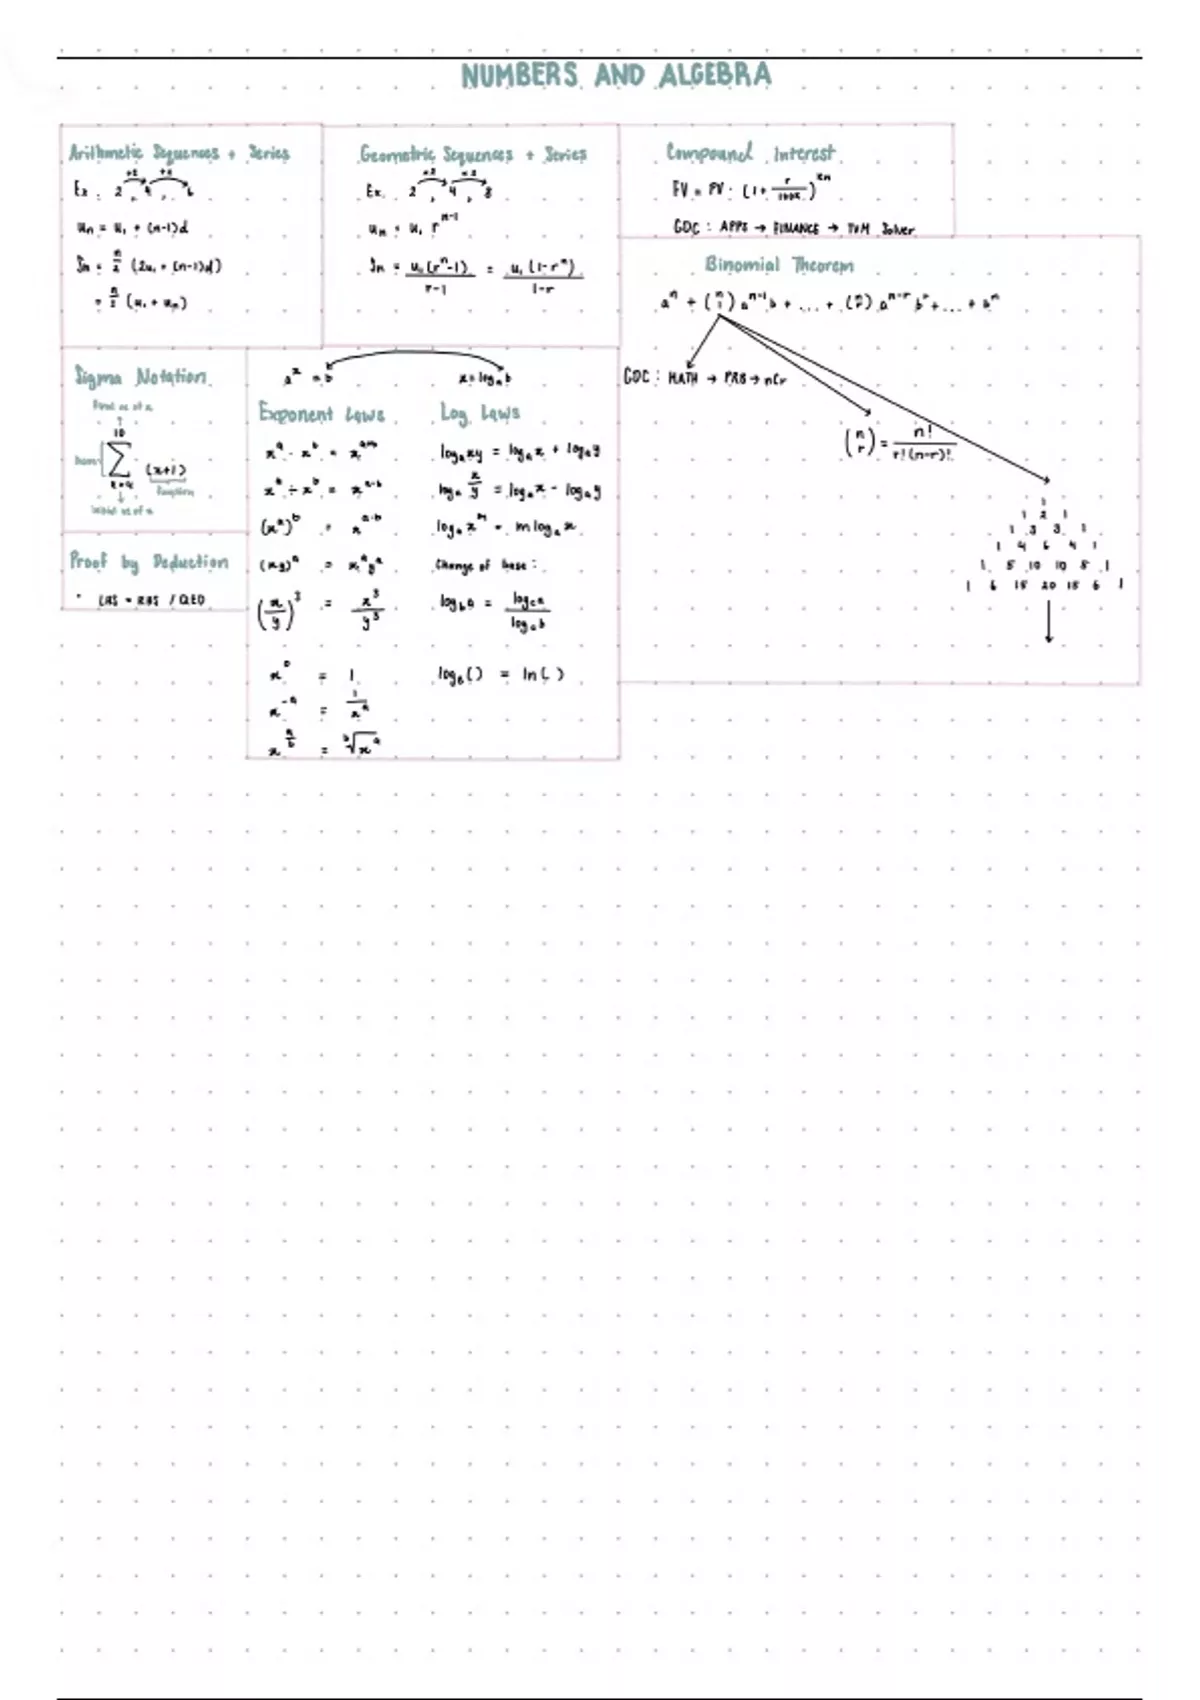 NUMBERS AND ALGEBRA
Arithmetic Sequences + Series
Ex. 2, 4, 6
+2 +2
uₙ = u₁ + (n-1)d
Sₙ = n/2 (2u₁ + (n-1)d)
= n/2 (u₁ + uₙ)
Geometric Sequences + Series
×2 ×2
Ex. 2, 4, 8
uₙ = u₁ rⁿ⁻¹
Sₙ = u₁(rⁿ-1)/r-1 = u₁(1-rⁿ)/1-r
Compound Interest
FV = PV · (1 + r/100k)ᵏⁿ
GDC : APPS → FINANCE → TVM Solver
Binomial Theorem
aⁿ + (n 1) aⁿ⁻¹b + ... + (n r) aⁿ⁻ʳ bʳ + ... + bⁿ
GDC : MATH → PRB → nCr
(n r) = n!/r!(n-r)!
1
1 2 1
1 3 3 1
1 4 6 4 1
1 5 10 10 5 1
1 6 15 20 15 6 1
Sigma Notation
10
Σ (x+1)
function
Proof by Deduction
• LHS = RHS / QED
aˣ = b
x = logₐb
Exponent Laws
xᵃ · xᵇ = xᵃ⁺ᵇ
xᵃ ÷ xᵇ = xᵃ⁻ᵇ
(xᵃ)ᵇ = xᵃ·ᵇ
(xy)ᵃ = xᵃyᵃ
(x/y)³ = x³/y³
x⁰ = 1
x⁻ᵃ = 1/xᵃ
x^(a/b) = ᵇ√xᵃ
Log Laws
logₐxy = logₐx + logₐy
logₐ x/y = logₐx - logₐy
logₐxᵐ = m logₐx
Change of base :
log_b a = log_c a/log_c b
logₑ( ) = ln( )